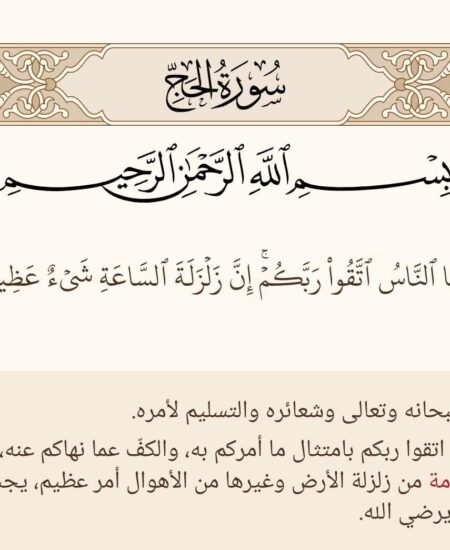 سُورَةُ الحَجِّ
بِسْمِ ٱللَّهِ ٱلرَّحْمَٰنِ ٱلرَّحِيمِ
ٱلنَّاسُ ٱتَّقُوا۟ رَبَّكُمْ ۚ إِنَّ زَلْزَلَةَ ٱلسَّاعَةِ شَىْءٌ
وتعالى وشعائره والتسليم لأمره.
اتقوا ربكم بامتثال ما أمركم به، والكفّ عما نهاكم عنه،
من زلزلة الأرض وغيرها من الأهوال أمر عظيم،
يرضي الله.